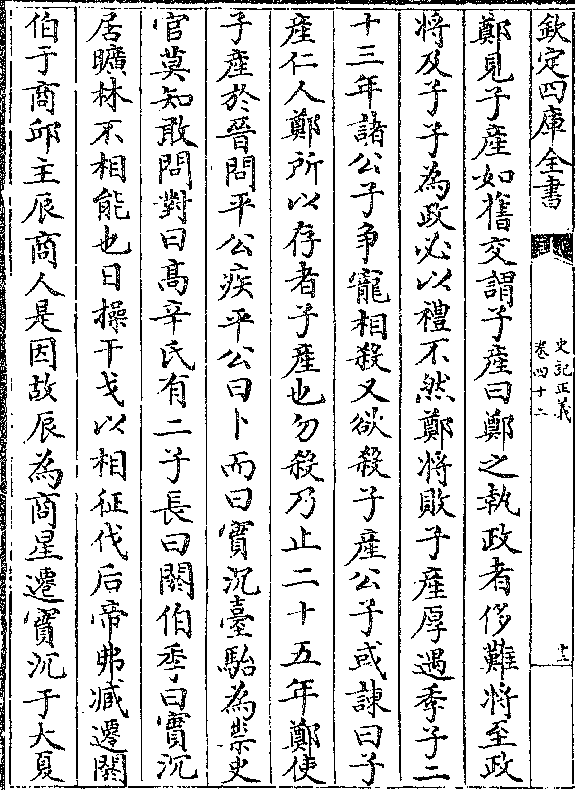 欽定四庫全書
史記正義
卷四十二
十二
鄭見子産如舊交謂子産曰鄭之執政者侈難將至政
將及子子為政必以禮不然鄭將敗子産厚遇季子二
十三年諸公子争寵相殺又欲殺子産公子或諫曰子
産仁人鄭所以存者子産也勿殺乃止二十五年鄭使
子産於晉問平公疾平公曰卜而曰實沉臺駘為祟史
官莫知敢問對曰高辛氏有二子長曰閼伯季曰實沉
居曠林不相能也日操干戈以相征伐后帝弗臧遷閼
伯于商邱主辰商人是因故辰為商星遷實沉于大夏